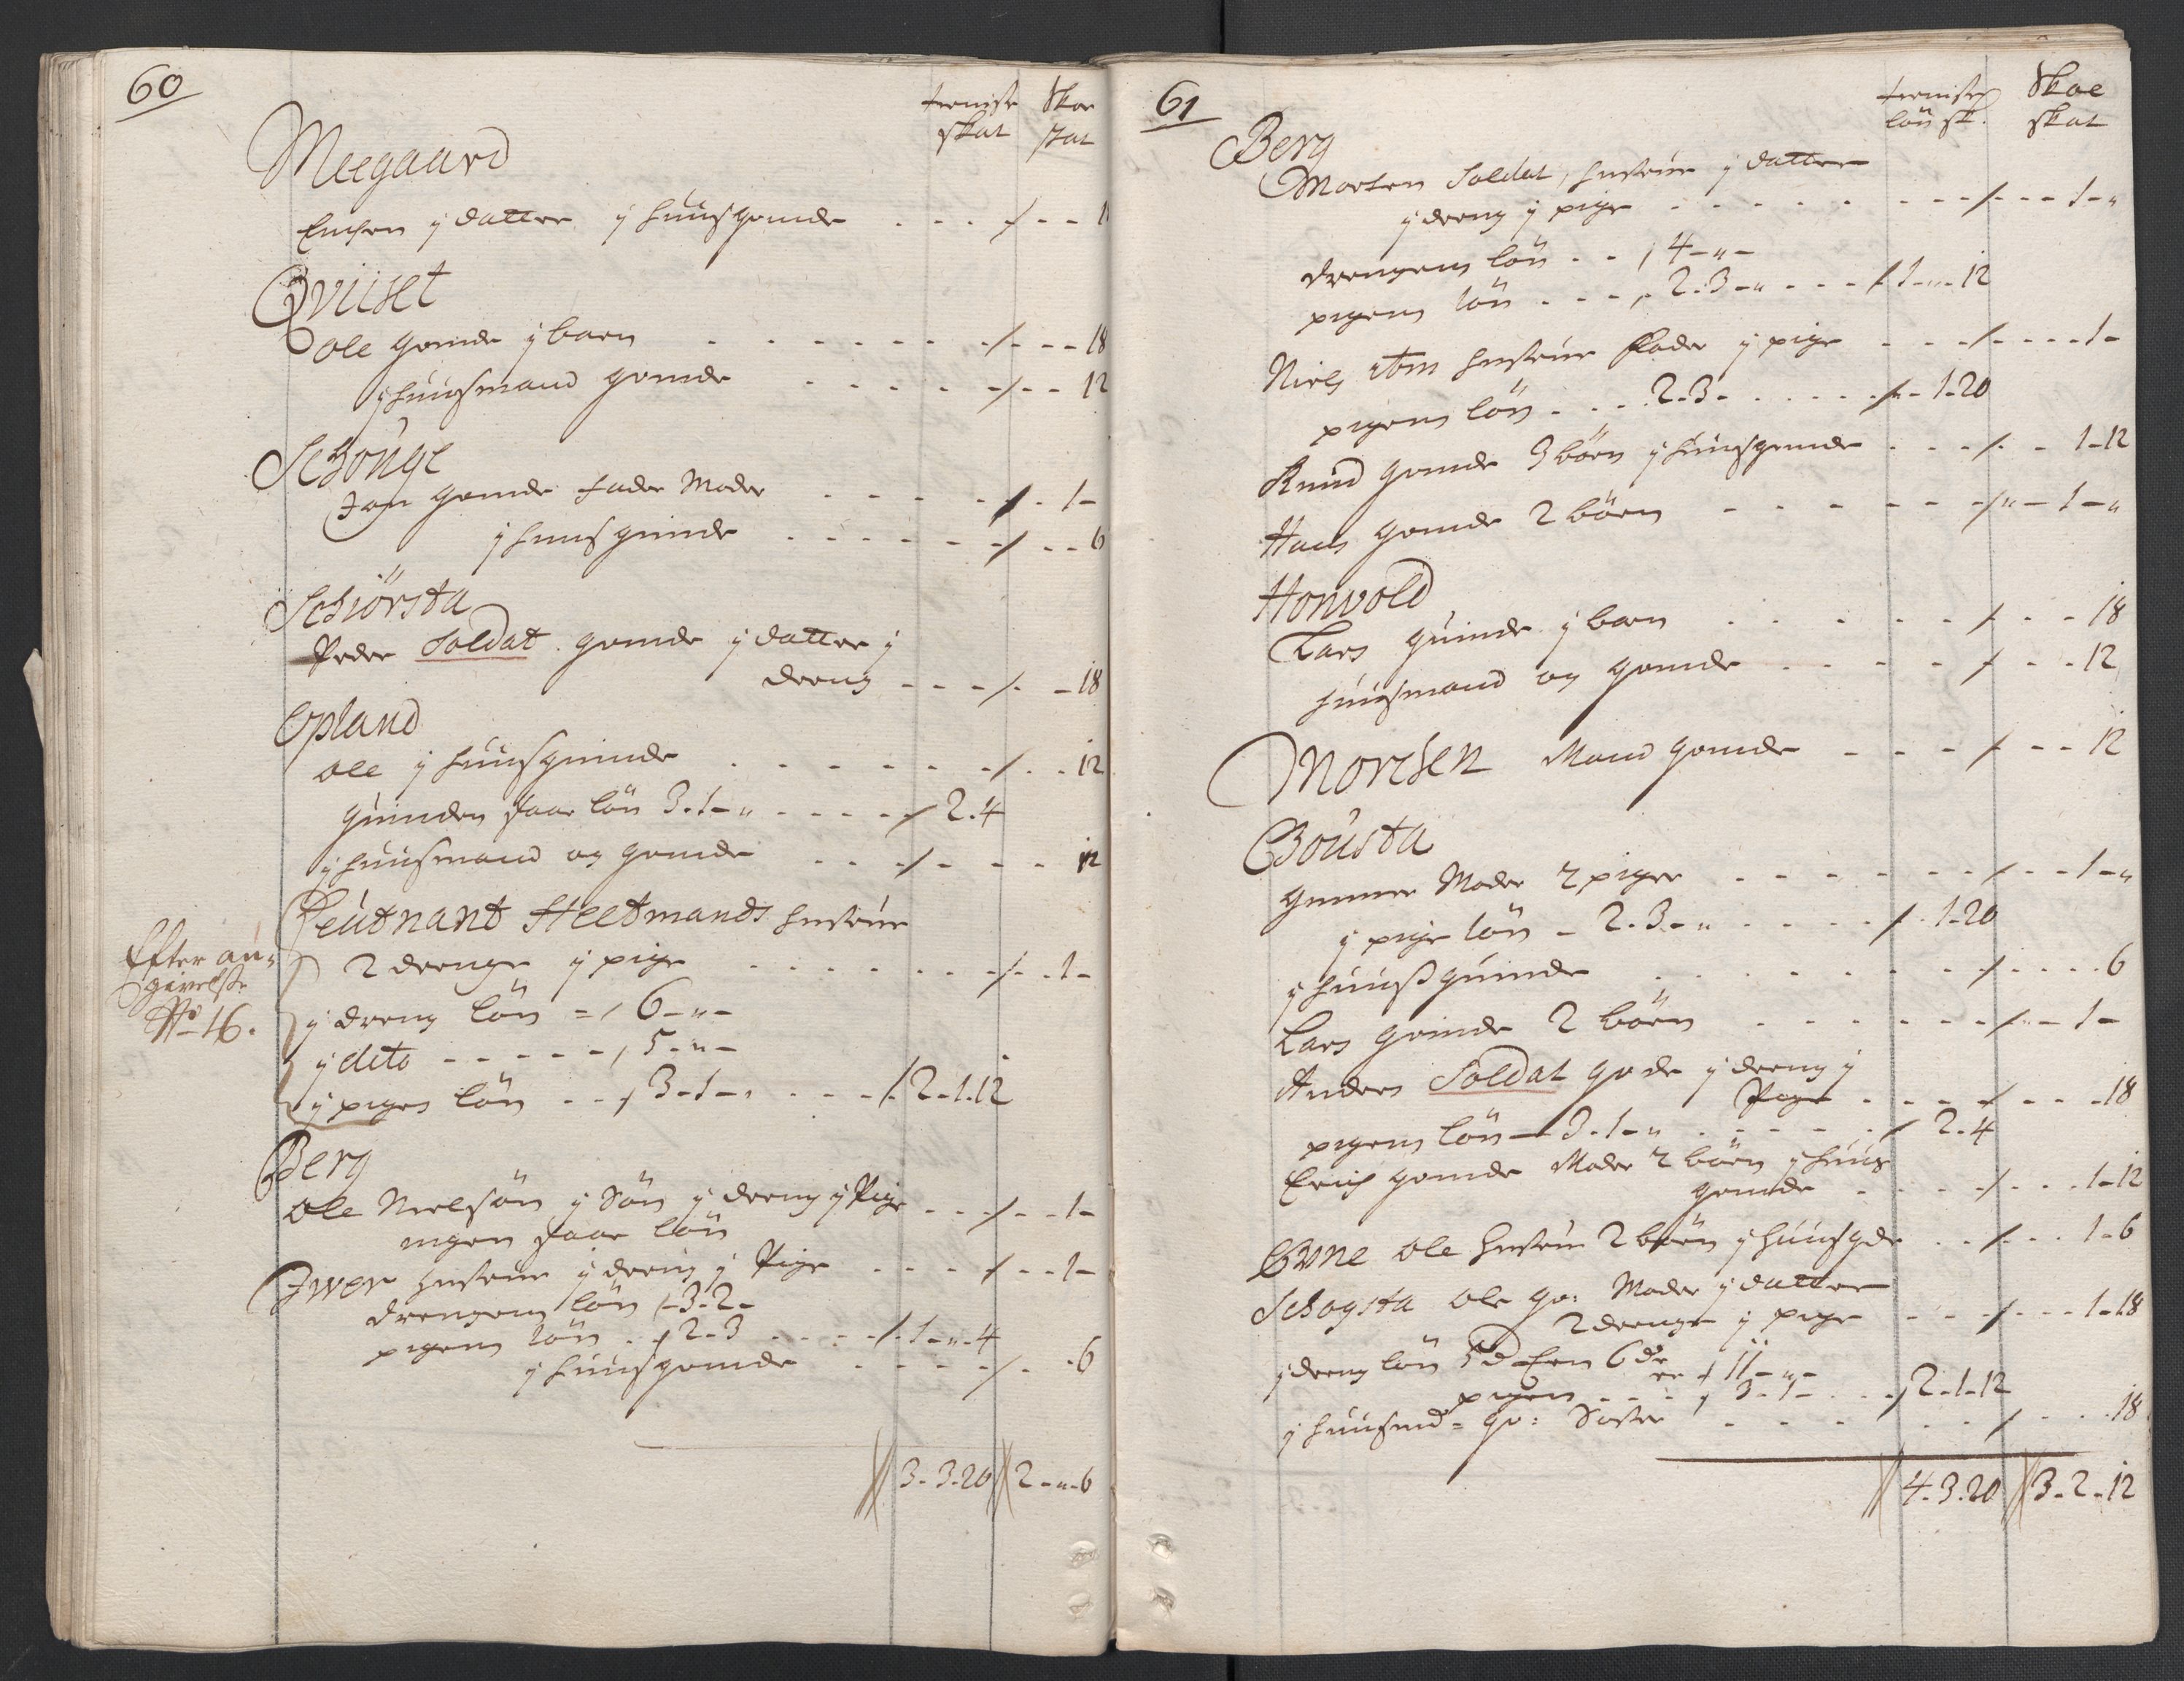 60
tieniste Skoe
skat skat
Meegaard
Enchen j datter j huusqvinde - - - / - - 1
Qviiset
ole qvinde j barn - - - / - - - 18
j huusmand qvinde - - - / - - 12
Schonge
Jon qvinde fader Moder - - / - 1 -
j huusqvinde - - - / - - 6
Schiørsta
Peder Soldat qvinde j datter j
dreng - - - / - - 18
Opland
ole j huusqvinde - - - / - - 12
qvinden faar løn 3 - 1 - " - - - / 2 - 4
j huusmand og qvinde - - - / - - - 12
Leutnant Heetmands hustrue
Efter an=
givelse
No 16.
2 drenge j pige - - - / - - 1 -
j dreng løn - / 6 - " -
j dito - - - - - / 5 - " -
j piges løn - - / 3 - 1 - " - - - / 2 - 1 - 12
Berg
ole Nielsøn j Søn j dreng j Pige - - - / - - 1 -
ingen faar løn
Iwer hustrue j dreng j Pige - - - / - - 1 -
drengens løn / - 3 - 2 -
pigens løn - - / 2 - 3 - - - / - 1 - " - 4
j huusqvinde - - - / - - 6
3 - 3 - 20 2 - " - 6
61
tieniste Skoe
løn sk. skat
Berg
Morten Soldat, hustrue j datter
j dreng j pige - - - / - - - 1 - "
drengens løn - - / 4 - " -
pigens løn - - - / - 2 - 3 - " - - - / 1 - " - 12
Niels item hustrue fader j pige - - - / - - - - 1 -
pigens løn - - - 2 - 3 - - - - / - - 1 - 20
Knud qvinde 3 børn j huusqvinde - - - / - - 1 - 12
Hans qvinde 2 børn - - - / " - 1 - "
Honvold
Lars qvinde j barn - - - / - - - 18
huusmand og qvinde - - - / - - - 12
Morchen Mand qvinde - - - / - - - 12
Bousta
Gunner Moder 2 piger - - - / - - - 1 - "
j pige løn - 2 - 3 - " - - - / - 1 - 20
j huusqvinde - - - / - - - - 6
Lars qvinde 2 børn - - - / - - - 1 -
Anders Soldat qvde j dreng j
Pige - - - / - - - 18
pigens løn - 3 - 1 - " - - - / 2 - 4
Erich qvinde Moder 2 børn j huus
qvinde - - - / - - - 1 - 12
Ole hustrue 2 børn j huusqde - - - / - - - 1 - 6
Schogsta ole qv: Moder j datter
2 drenge j pige - - - / - - - 1 - 18
j dreng løn 5 d Een 6 dr er / 11 - " -
pigen - - - / 3 - 1 - - - - / 2 - 1 - 12
j huusmd = qv: Søster - - - / - - - 18
4 - 3 - 20 3 - 2 - 12